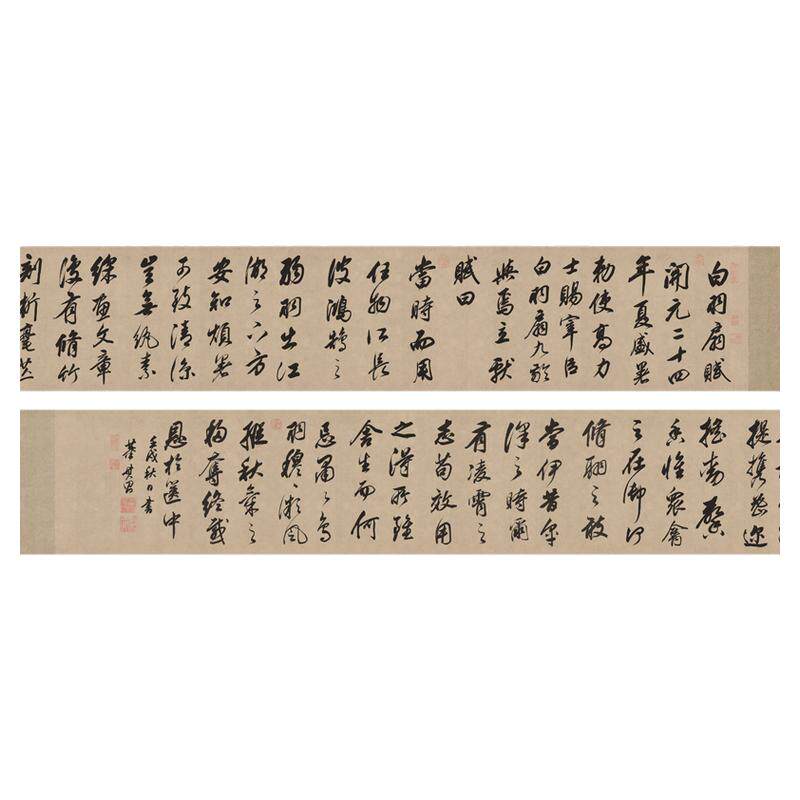 白羽扇賦
開元二十四
年夏盛暑
勅使高力
士賜宰臣
白羽扇九齡
與焉立獻
賦曰
當時而用
任物所長
彼鴻鵠之
弱羽出江
湖之下方
安知煩暑
可致清涼
豈無紈素
綵畫文章
復有脩竹
剖析毫芒
提攜密邇
搖動馨
香惟衆禽
之在御何
脩翮之敢
當伊昔皐
澤之時爾
有凌霄之
志苟效用
之得所雖
舍生而何
忌肅〻鳥
羽穆〻風
縱秋氣之
移奪終感
恩於篋中
壬戌秋日書
董其昌